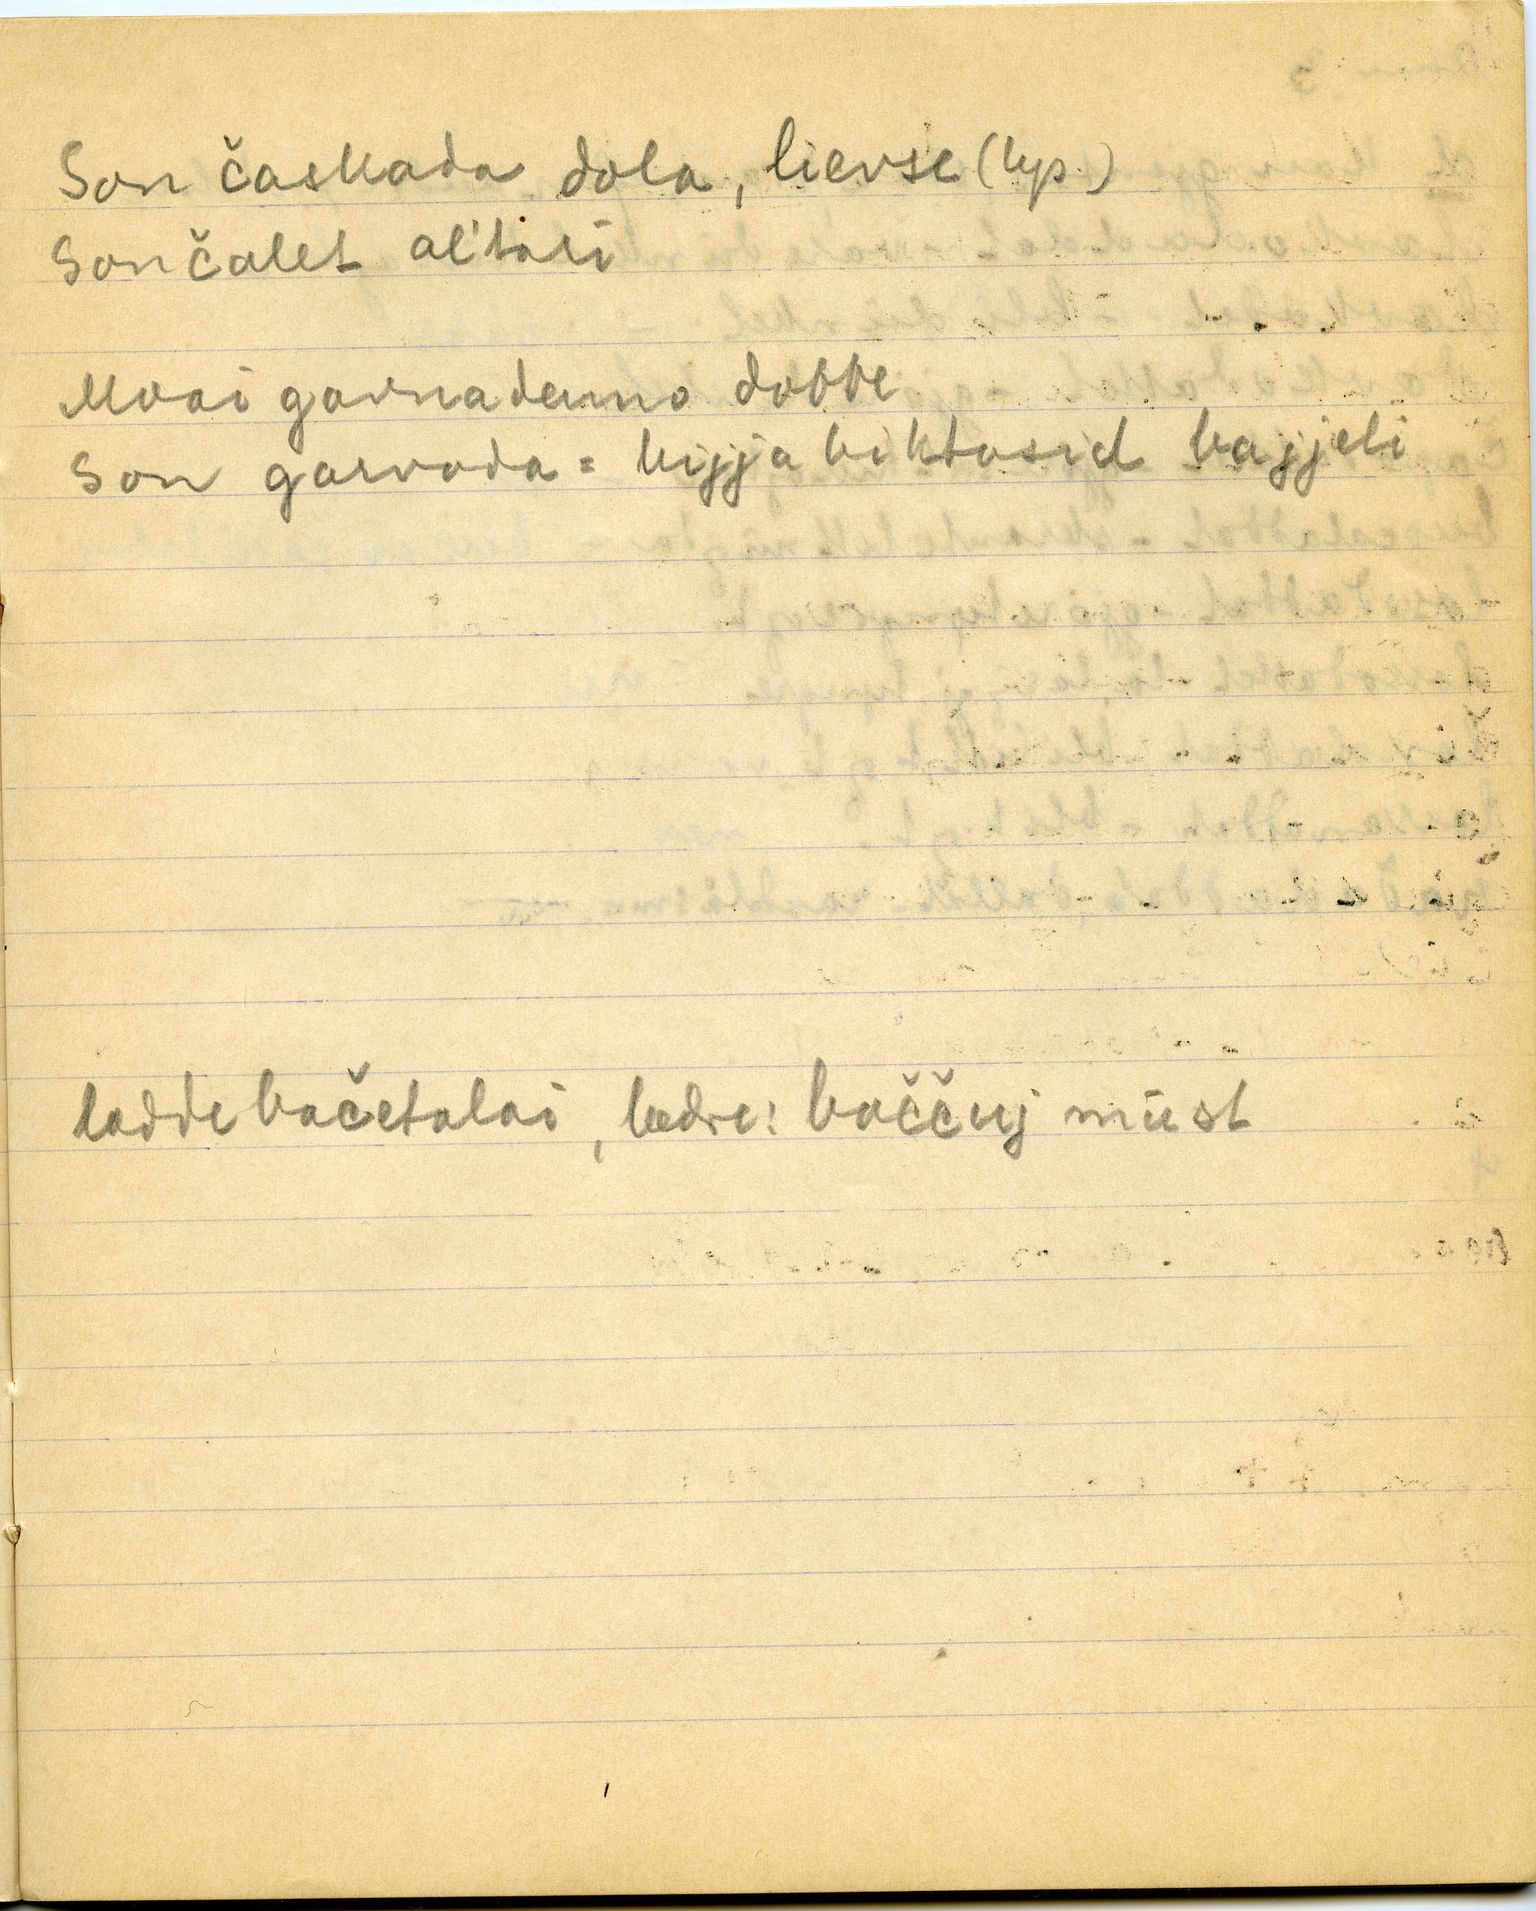 Son časkada dola, lievse (lys)
Son čalet al'tari
Moai garnademo dobbe
Son garvoda = bijja biktasid bajjeli
ladde bačetalai, bedre: baččuj must